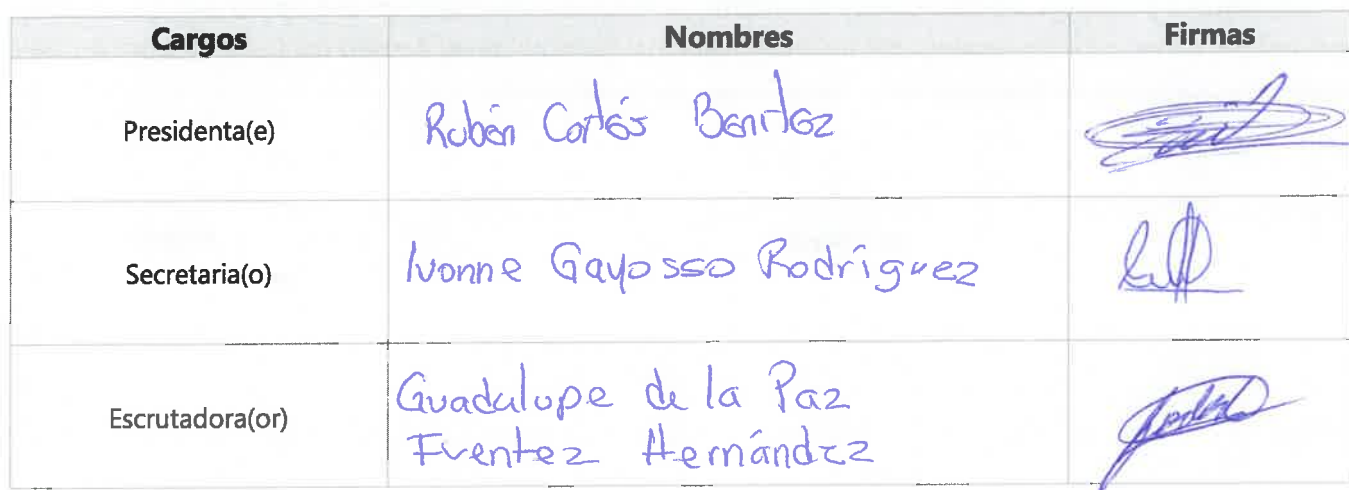 Cargos Nombres Firmas
Presidenta(e) Rubén Cortés Benítez
Secretaria(o) Ivonne Gayosso Rodríguez
Escrutadora(or) Guadalupe de la Paz
Fuentez Hernández